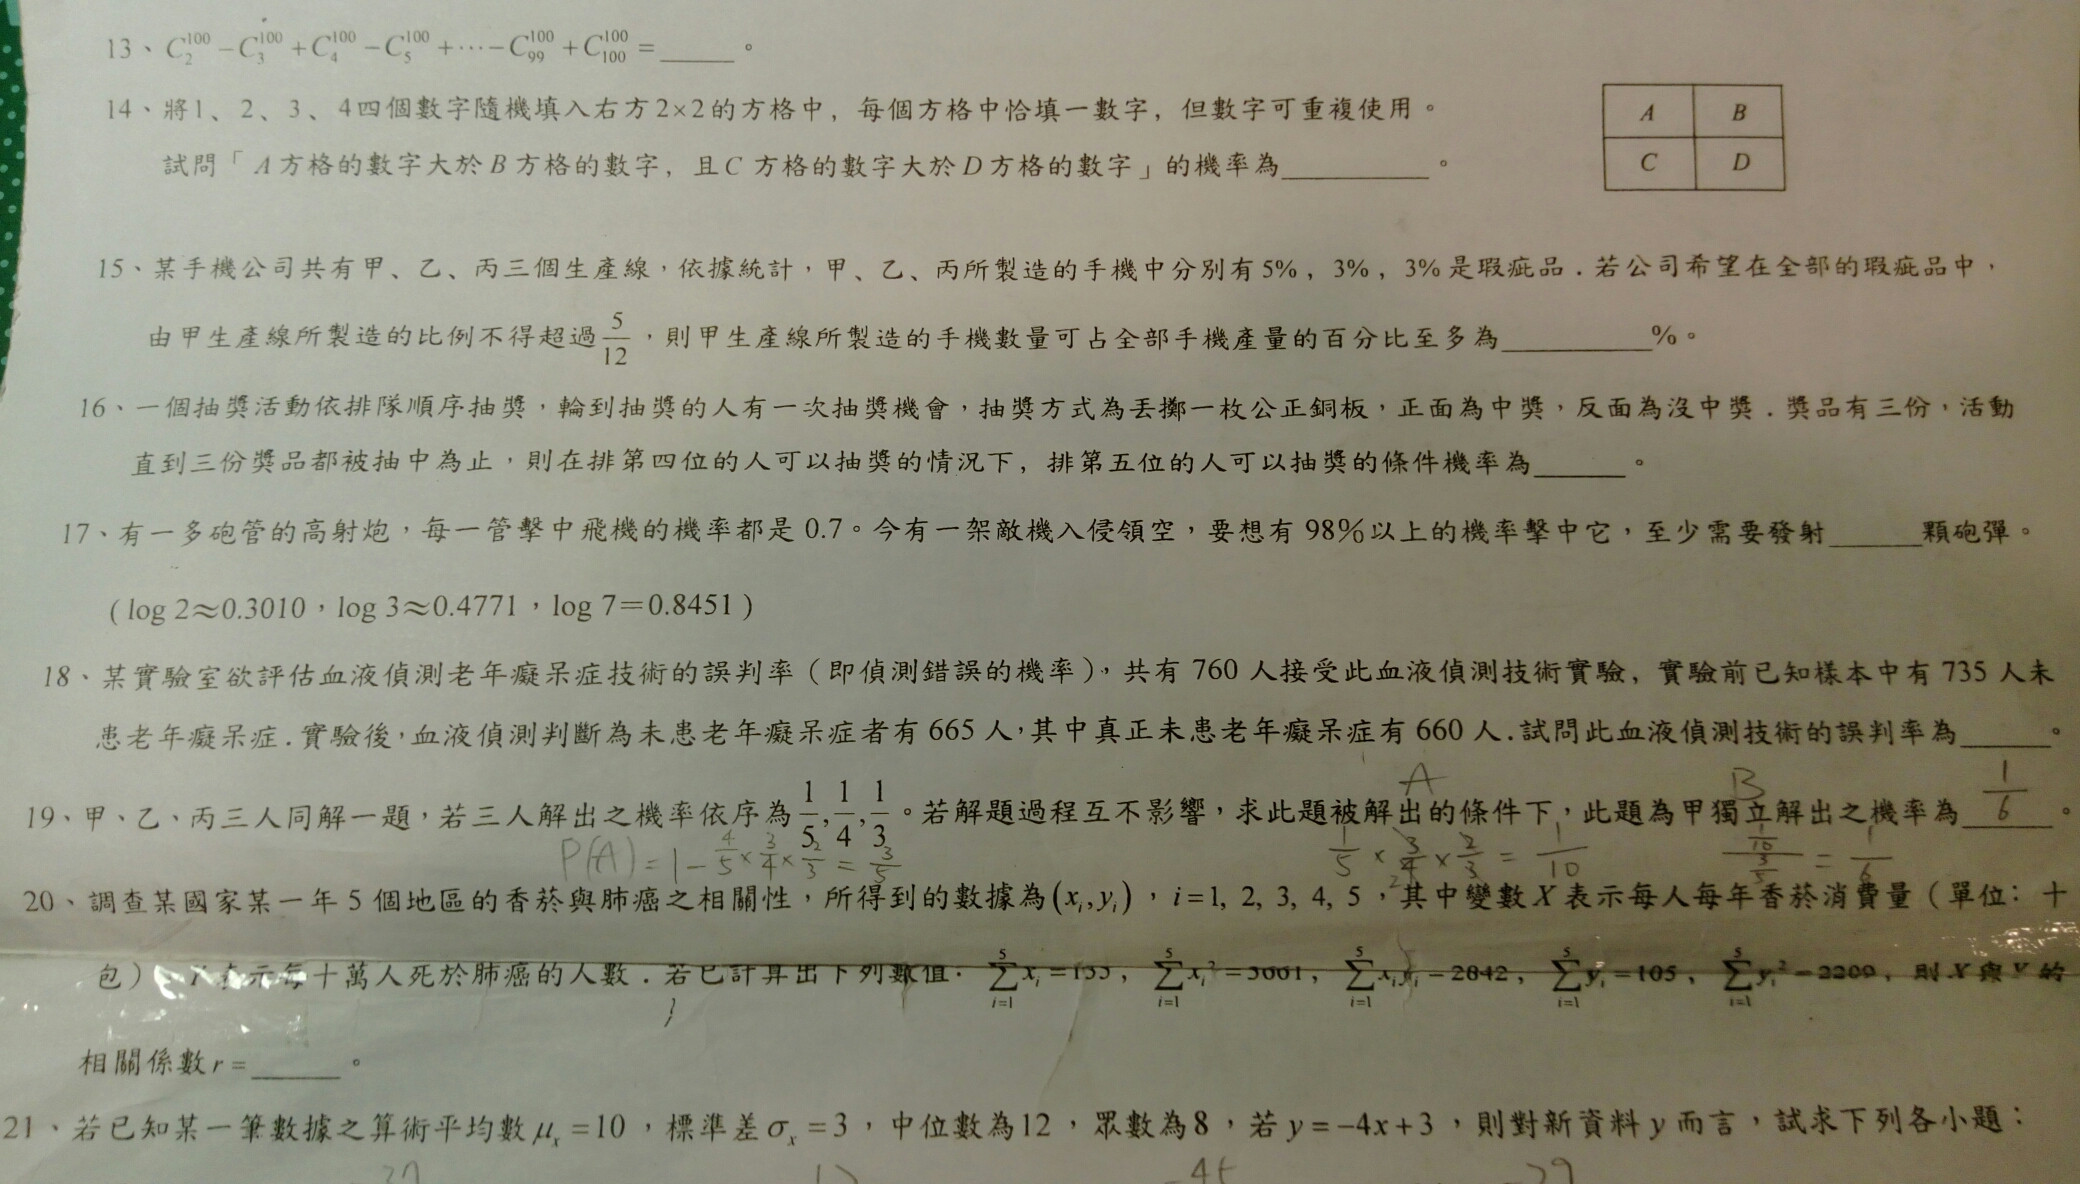 13、C₂¹⁰⁰ − C₃¹⁰⁰ + C₄¹⁰⁰ − C₅¹⁰⁰ + ⋯ − C₉₉¹⁰⁰ + C₁₀₀¹⁰⁰ = ______。
14、將1、2、3、4四個數字隨機填入右方2×2的方格中，每個方格中恰填一數字，但數字可重複使用。
試問「A方格的數字大於B方格的數字，且C方格的數字大於D方格的數字」的機率為__________。
A B
C D
15、某手機公司共有甲、乙、丙三個生產線，依據統計，甲、乙、丙所製造的手機中分別有5%，3%，3%是瑕疵品．若公司希望在全部的瑕疵品中，
由甲生產線所製造的比例不得超過5/12，則甲生產線所製造的手機數量可占全部手機產量的百分比至多為__________%。
16、一個抽獎活動依排隊順序抽獎，輪到抽獎的人有一次抽獎機會，抽獎方式為丟擲一枚公正銅板，正面為中獎，反面為沒中獎．獎品有三份，活動
直到三份獎品都被抽中為止，則在排第四位的人可以抽獎的情況下，排第五位的人可以抽獎的條件機率為______。
17、有一多砲管的高射炮，每一管擊中飛機的機率都是0.7。今有一架敵機入侵領空，要想有98%以上的機率擊中它，至少需要發射______顆砲彈。
(log 2≈0.3010，log 3≈0.4771，log 7＝0.8451)
18、某實驗室欲評估血液偵測老年癡呆症技術的誤判率（即偵測錯誤的機率），共有760人接受此血液偵測技術實驗，實驗前已知樣本中有735人未
患老年癡呆症．實驗後，血液偵測判斷為未患老年癡呆症者有665人，其中真正未患老年癡呆症有660人．試問此血液偵測技術的誤判率為______。
A B
19、甲、乙、丙三人同解一題，若三人解出之機率依序為1/5,1/4,1/3。若解題過程互不影響，求此題被解出的條件下，此題為甲獨立解出之機率為 1/6 。
P(A)=1−4/5×3/4×2/3=3/5 1/5×3/4×2/3=1/10 (1/10)/(3/5)=1/6
20、調查某國家某一年5個地區的香菸與肺癌之相關性，所得到的數據為(xᵢ,yᵢ)，i=1, 2, 3, 4, 5，其中變數X表示每人每年香菸消費量（單位：十
包），Y表示每十萬人死於肺癌的人數．若已計算出下列數值：∑xᵢ=135，∑xᵢ²=3661，∑xᵢyᵢ=2842，∑yᵢ=105，∑yᵢ²=2209，則X與Y的
相關係數r=______。
21、若已知某一筆數據之算術平均數μₓ=10，標準差σₓ=3，中位數為12，眾數為8，若y=−4x+3，則對新資料y而言，試求下列各小題：